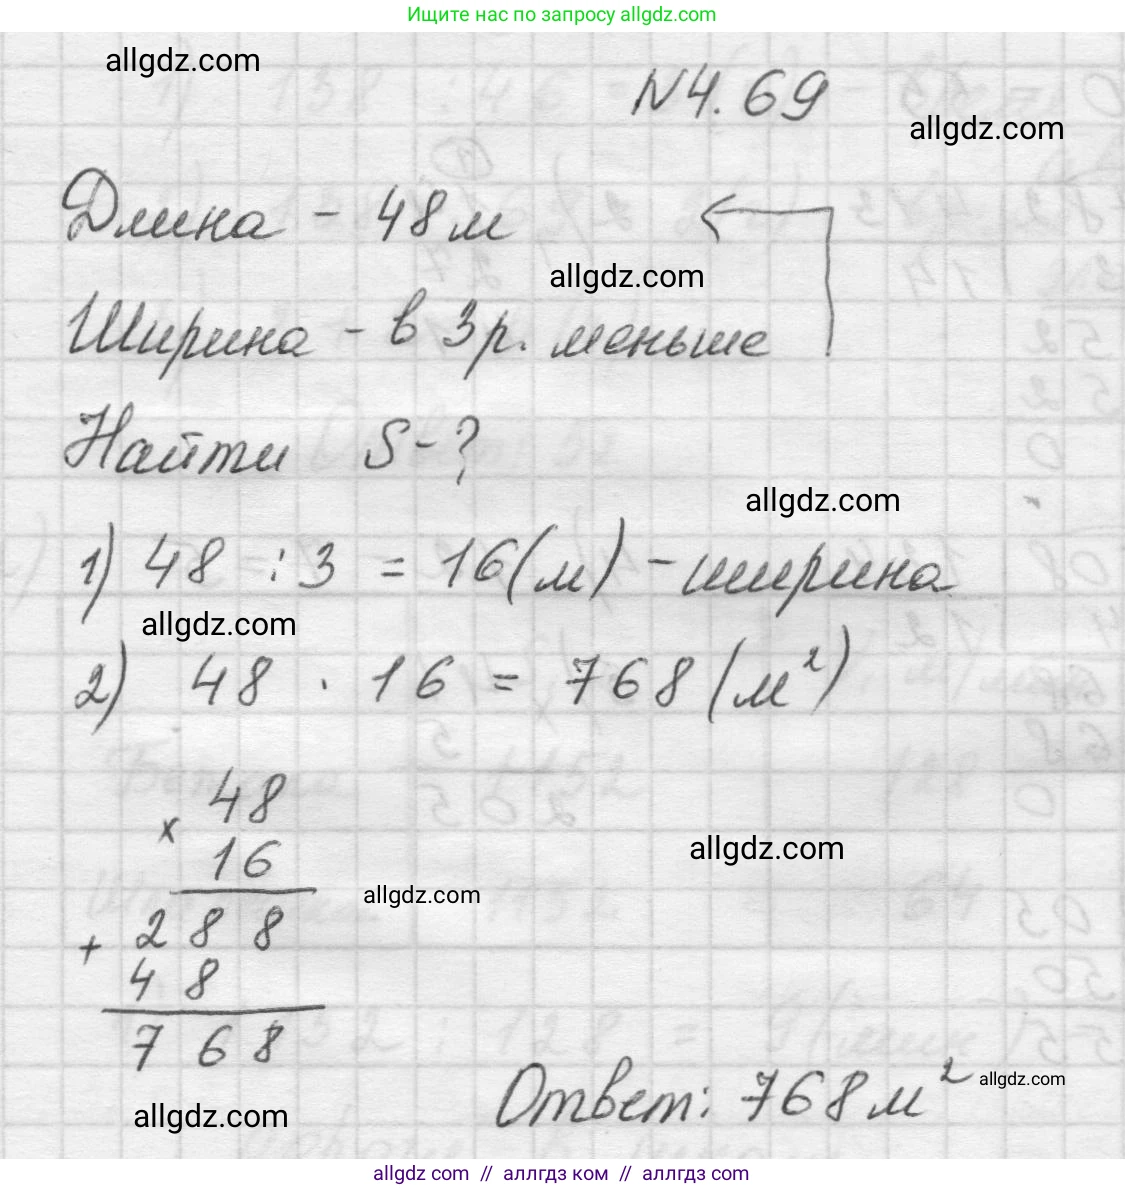 Ищите нас по запросу allgdz.com
allgdz.com
N4.69
allgdz.com
Длина - 48м
allgdz.com
Ширина - в 3р. меньше
Найти S-?
allgdz.com
1) 48 : 3 = 16(м) - ширина
allgdz.com
2) 48 · 16 = 768(м²)
48
x
16
allgdz.com
allgdz.com
288
+
48
768
allgdz.com
Ответ: 768м²
allgdz.com
allgdz.com // аллгдз ком // аллгдз.com